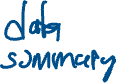 data
summary